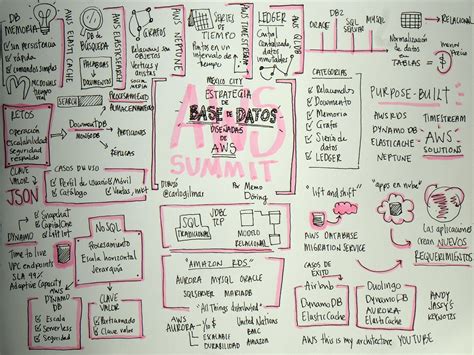 DB
MEMORIA
sin persistencia
rápida
comandos simples
AWS ELASTICACHE
DB
DE
BÚSQUEDA
PALABRAS
DOCUMENTOS
AWS ELASTICSEARCH
GRAFOS
Relaciones son
objetos
Vértices y
aristas
AWS NEPTUNE
SERIES
DE
TIEMPO
Puntos en un
intervalo de
tiempo
AWS TIMESTREAM
LEDGER
Central
Centralizado,
datos
inmutables
ORACLE
DB2
SQL
SERVER
MYSQL
RELACIONAL
Normalización
de datos
TABLAS
PRECIO
SEARCH
PROCESAMIENTO
ALMACENAMIENTO
RETOS
Operación
escalabilidad
Seguridad
respaldo
DocumentDB
MONGODB
PARTICIONES
RÉPLICAS
MEXICO CITY
ESTRATEGIA
DE
BASE DE DATOS
DISEÑADAS
DE
AWS
AWS
SUMMIT
DIBUJO
@carlogilmar
Por Memo
Döring
CATEGORÍAS
Relacionales
Documento
Memoria
Grafos
Series de
datos
LEDGER
PURPOSE-BUILT
AWS RDS
TIMESTREAM
DYNAMO DB
ELASTICACHE
NEPTUNE
AWS
SOLUTIONS
CLAVE
VALOR
JSON
CASOS DE USO
Perfil de usuario
Móvil
Catálogo
Ventas
"lift and shift"
"apps en nube"
AWS DATABASE
MIGRATION SERVICE
Las aplicaciones
crean NUEVOS
REQUERIMIENTOS
Snapchat
CapitalOne
DYNAMO
Time to live
VPC endpoints
SLA 99%
Adaptive Capacity
NoSQL
Procesamiento
Escala horizontal
Jerarquía
SQL
TRADICIONAL
JDBC
TCP
MODELO
RELACIONAL
"AMAZON RDS"
AURORA MYSQL ORACLE
SQLSERVER MARIADB
CASOS DE
ÉXITO
Airbnb
DynamoDB
ElasticCache
Duolingo
DynamoDB
AURORA
ElasticCache
ANDY
JASSY'S
KEYNOTES
AWS
DYNAMO
DB
Escala
Serverless
Seguridad
CLAVE
VALOR
Particionado
Clave valor
"All Things distributed"
AWS
AURORA
YouTube
United Nations
BMC
Amazon
ESCALABLE
DURABILIDAD
AWS this is my architecture YOUTUBE